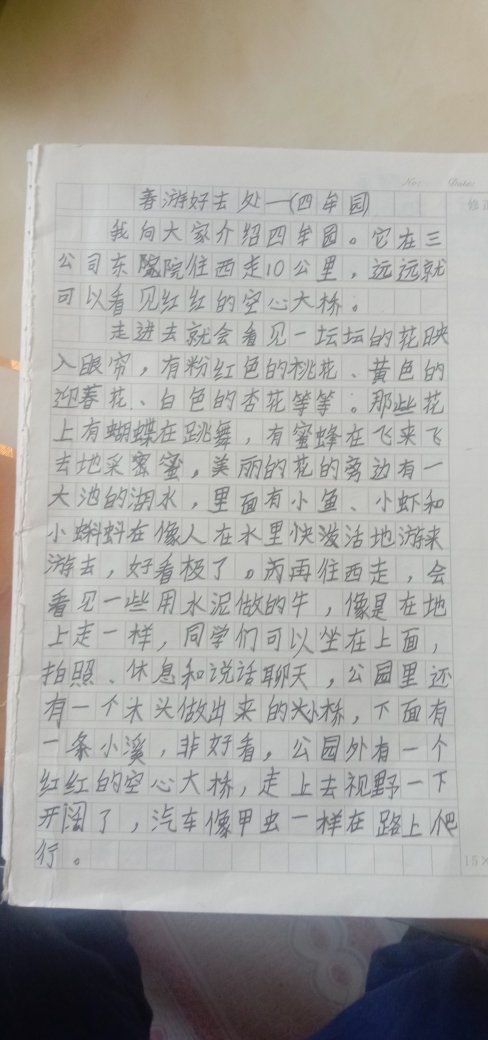 No:
Date:
春游好去处—(四牟园)
我向大家介绍四牟园。它在三
公司东院住西走10公里，远远就
可以看见红红的空心大桥。
走进去就会看见一坛坛的花映
入眼帘，有粉红色的桃花、黄色的
迎春花、白色的杏花等等。那些花
上有蝴蝶在跳舞，有蜜蜂在飞来飞
去地采蜜，美丽的花的旁边有一
大池的湖水，里面有小鱼、小虾和
小蝌蚪在像人在水里快泼活地游来
游去，好看极了。再住西走，会
看见一些用水泥做的牛，像是在地
上走一样，同学们可以坐在上面，
拍照、休息和说话聊天，公园里还
有一个木头做出来的小桥，下面有
一条小溪，非好看，公园外有一个
红红的空心大桥，走上去视野一下
开阔了，汽车像甲虫一样在路上爬
行。